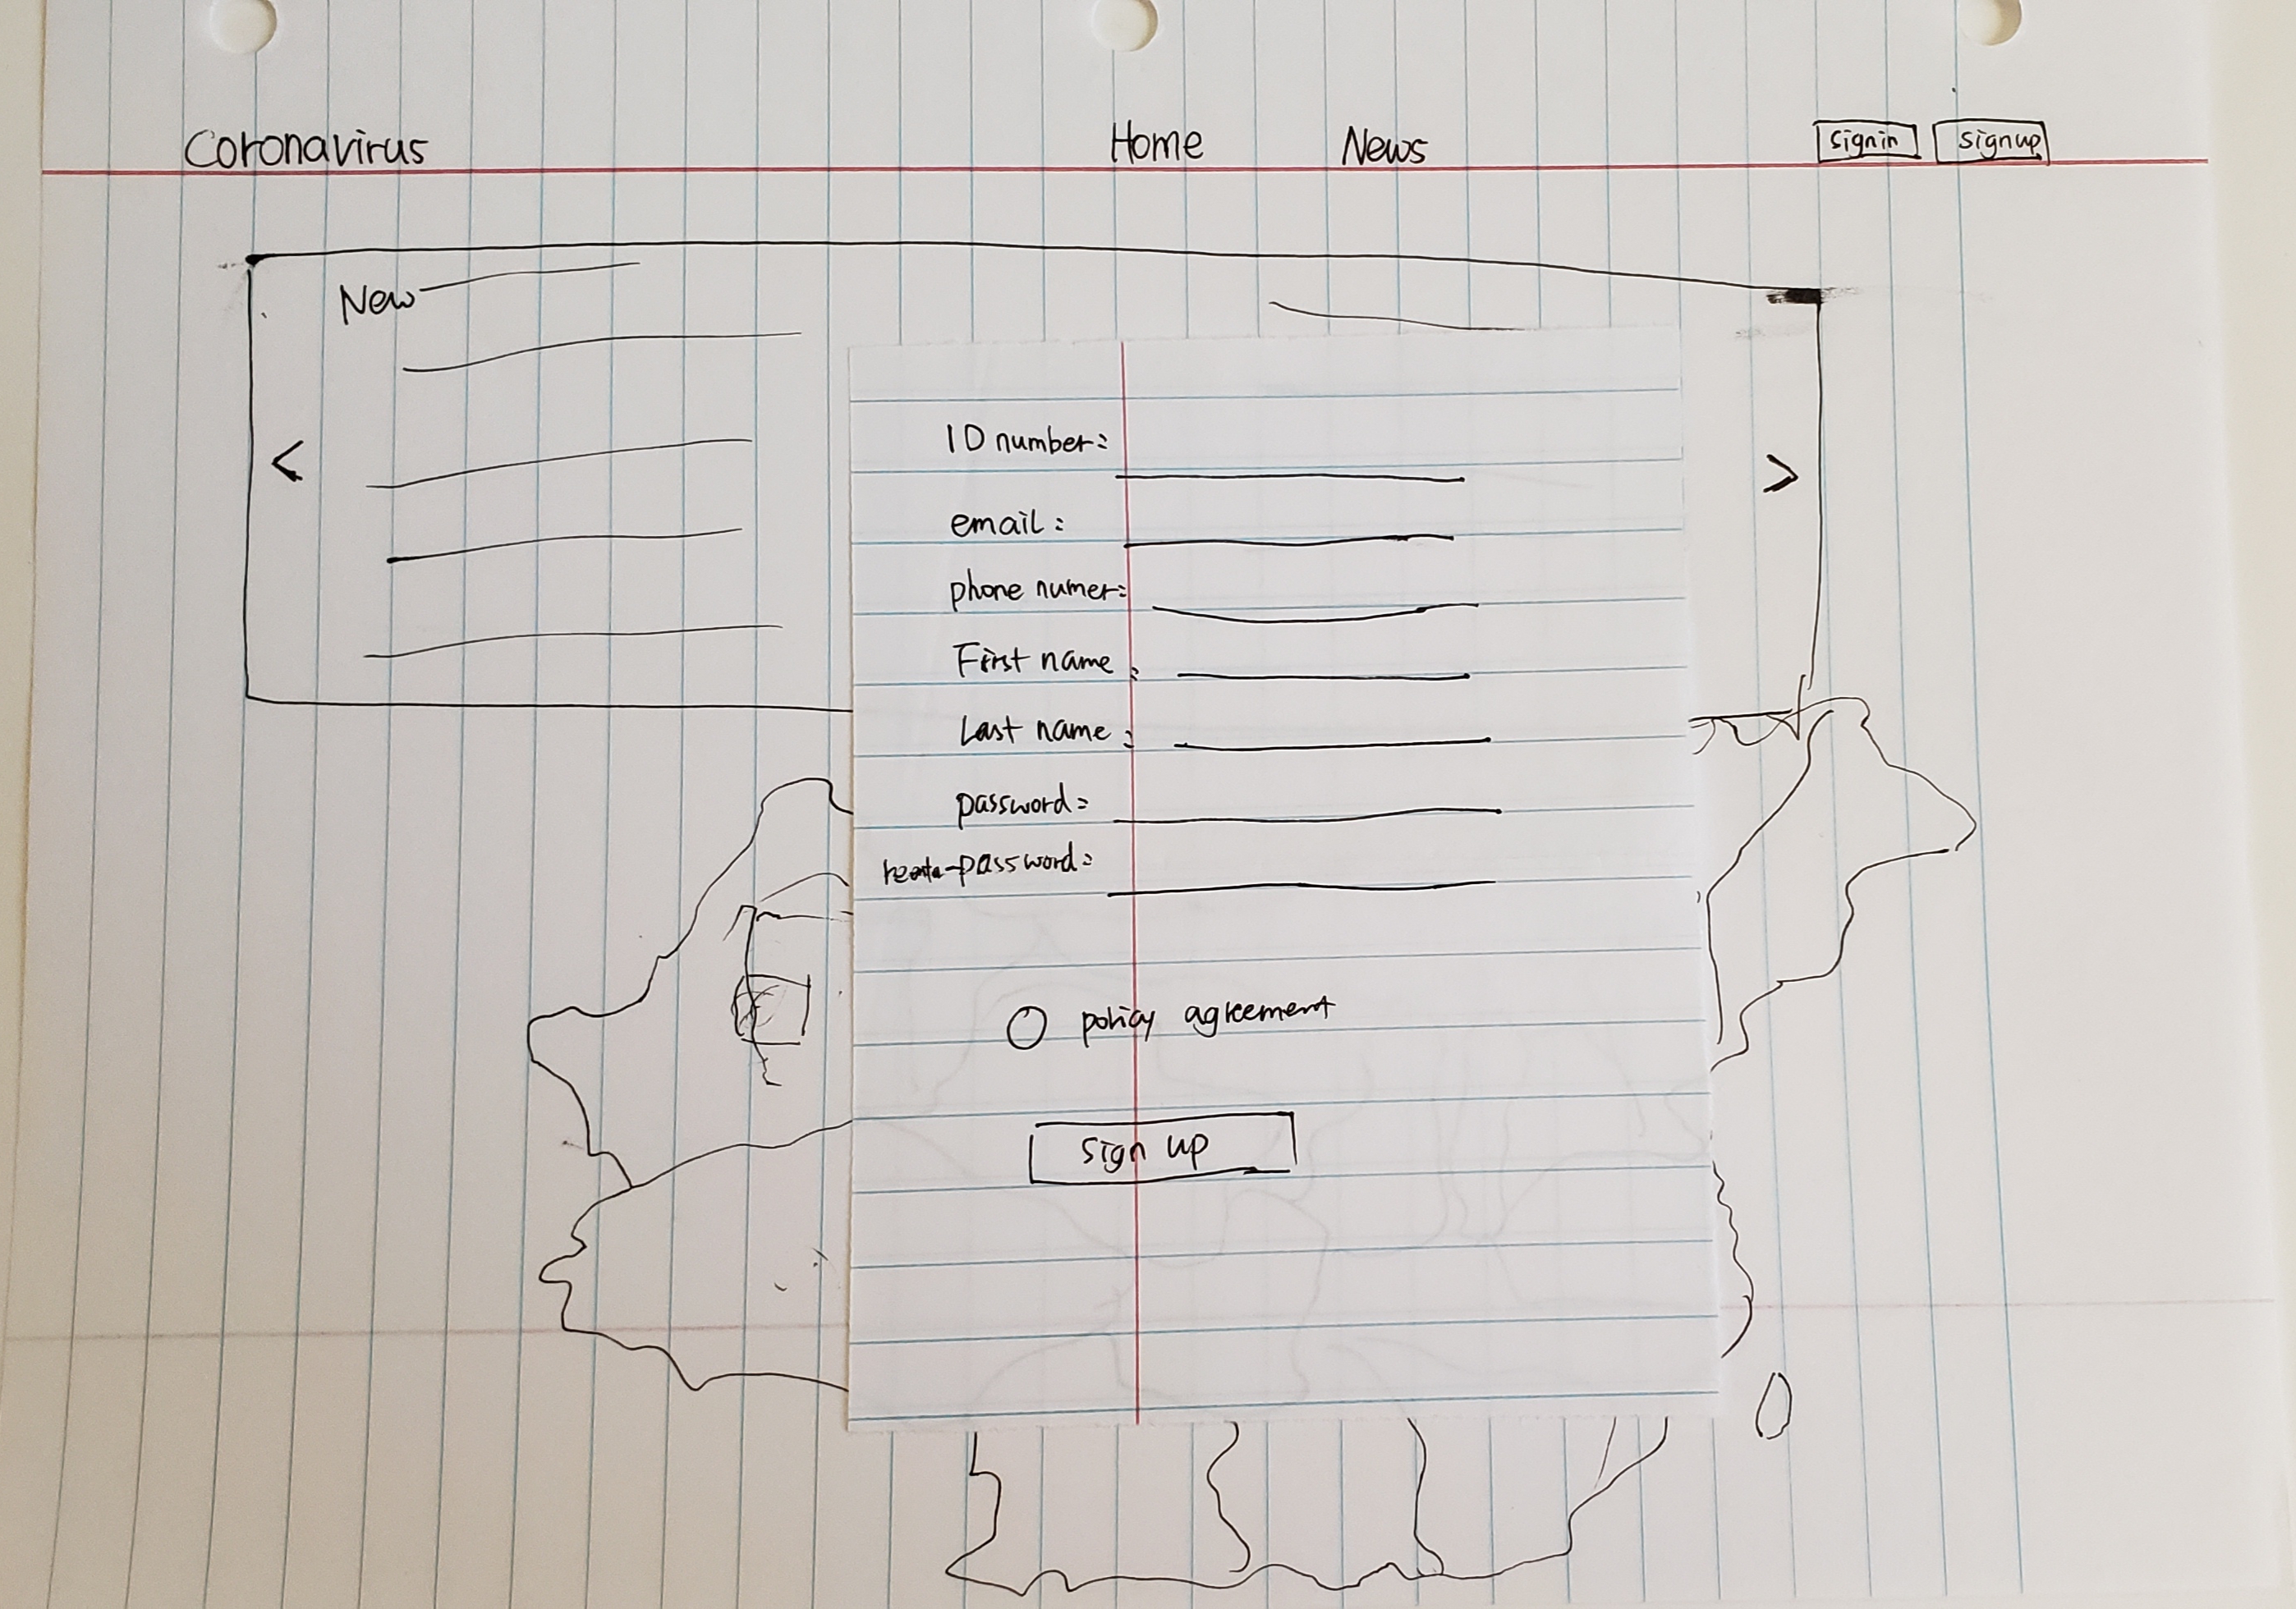 Coronavirus Home News Signin Signup
New
< >
ID number:
email:
phone numer:
First name:
Last name:
password:
-password:
policy agreement
Sign up